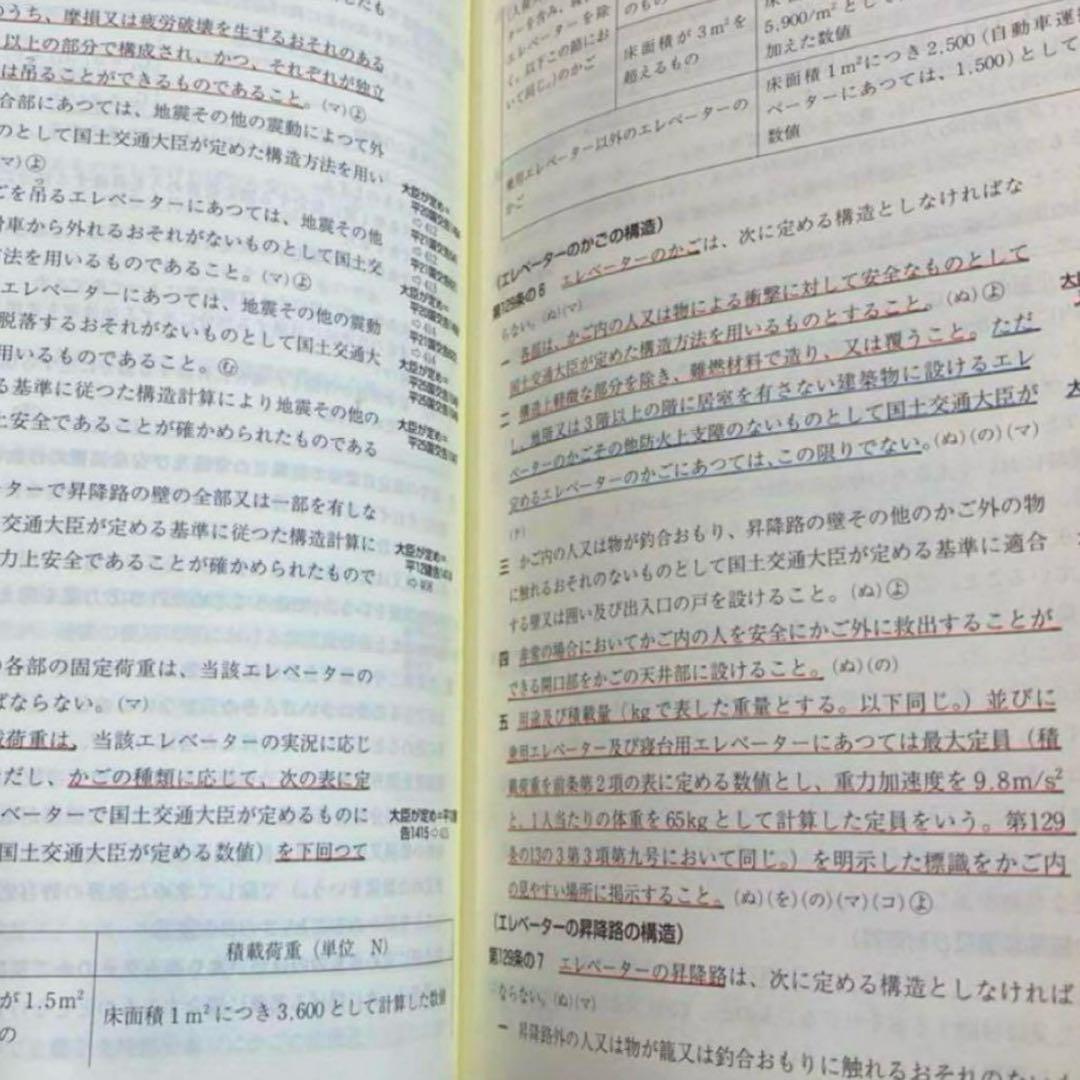 したも
のうち、摩損又は疲労破壊を生ずるおそれのある
以上の部分で構成され、かつ、それぞれが独立
は吊ることができるものであること。(マ)㋵
合部にあつては、地震その他の震動によつて外
のとして国土交通大臣が定めた構造方法を用い
マ)㋵
ごを吊るエレベーターにあつては、地震その他
滑車から外れるおそれがないものとして国土交
方法を用いるものであること。(マ)㋵
エレベーターにあつては、地震その他の震動
脱落するおそれがないものとして国土交通大
用いるものであること。㋰
る基準に従つた構造計算により地震その他の
上安全であることが確かめられたものである
ターで昇降路の壁の全部又は一部を有しな
交通大臣が定める基準に従つた構造計算に
力上安全であることが確かめられたもので
各部の固定荷重は、当該エレベーターの
ばならない。(マ)
載荷重は、当該エレベーターの実況に応じ
だし、かごの種類に応じて、次の表に定
ベーターで国土交通大臣が定めるものに
国土交通大臣が定める数値)を下回つて
積載荷重(単位 N)
が1.5m²
の
床面積1m²につき3,600として計算した数値
大臣が定め=
大臣が定め=
大臣が定め=
大臣が定め=
大臣が定め=
大臣が定め=
告1415⇨
エレベーターを除
く。以下この節にお
いて同じ。)のかご
のもの
床面積が3m²を
超えるもの
5,900/m²として
加えた数値
床面積1m²につき2,500(自動車運
ベーターにあつては、1,500)として
数値
乗用エレベーター以外のエレベーターの
かご
(エレベーターのかごの構造)
第129条の6 エレベーターのかごは、次に定める構造としなければな
らない。(ぬ)(マ)
一 各部は、かご内の人又は物による衝撃に対して安全なものとして
国土交通大臣が定めた構造方法を用いるものとすること。(ぬ)㋵
二 構造上軽微な部分を除き、難燃材料で造り、又は覆うこと。ただ
し、地階又は3階以上の階に居室を有さない建築物に設けるエレ
ベーターのかごその他防火上支障のないものとして国土交通大臣が
定めるエレベーターのかごにあつては、この限りでない。(ぬ)(の)(マ)
三 かご内の人又は物が釣合おもり、昇降路の壁その他のかご外の物
に触れるおそれのないものとして国土交通大臣が定める基準に適合
する壁又は囲い及び出入口の戸を設けること。(ぬ)㋵
四 非常の場合においてかご内の人を安全にかご外に救出することが
できる開口部をかごの天井部に設けること。(ぬ)(の)
五 用途及び積載量(kgで表した重量とする。以下同じ。)並びに
乗用エレベーター及び寝台用エレベーターにあつては最大定員(積
載荷重を前条第2項の表に定める数値とし、重力加速度を9.8m/s²
と、1人当たりの体重を65kgとして計算した定員をいう。第129
条の13の3第3項第九号において同じ。)を明示した標識をかご内
の見やすい場所に掲示すること。(ぬ)(を)(の)(マ)(コ)㋵
(エレベーターの昇降路の構造)
第129条の7 エレベーターの昇降路は、次に定める構造としなければ
ならない。(ぬ)(マ)
一 昇降路外の人又は物が籠又は釣合おもりに触れるおそれのない